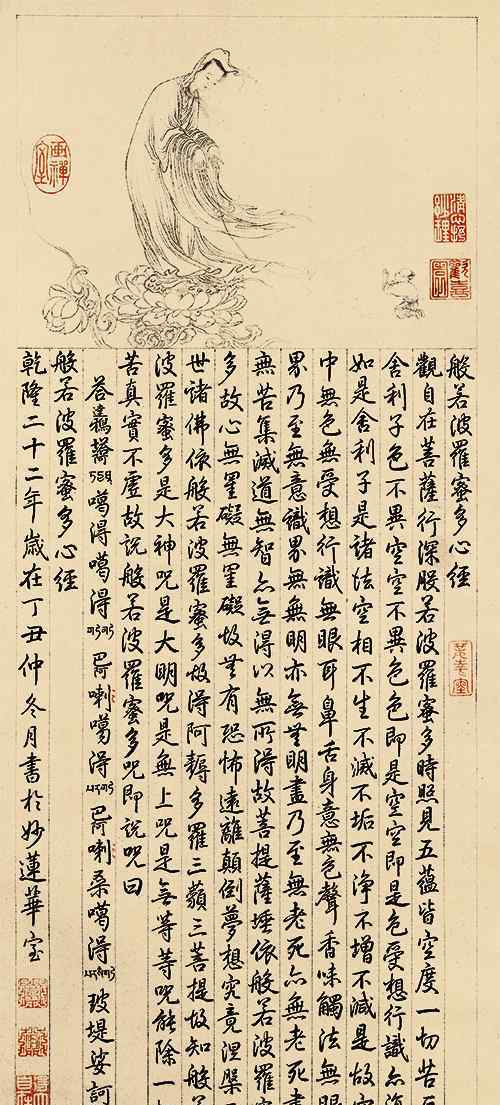 般若波羅蜜多心經
觀自在菩薩行深般若波羅蜜多時照見五蘊皆空度一切苦厄
舍利子色不異空空不異色色即是空空即是色受想行識亦
如是舍利子是諸法空相不生不滅不垢不淨不增不減是故空
中無色無受想行識無眼耳鼻舌身意無色聲香味觸法無眼
界乃至無意識界無無明亦無無明盡乃至無老死亦無老死盡
無苦集滅道無智亦無得以無所得故菩提薩埵依般若波羅蜜
多故心無罣礙無罣礙故無有恐怖遠離顛倒夢想究竟涅槃三
世諸佛依般若波羅蜜多故得阿耨多羅三藐三菩提故知般若
波羅蜜多是大神咒是大明咒是無上咒是無等等咒能除一切
苦真實不虛故說般若波羅蜜多咒即說咒曰
噶得噶得巴阿喇噶得巴阿喇桑噶得玻堤娑訶
般若波羅蜜多心經
乾隆二十二年歲在丁丑仲冬月書於妙蓮華室